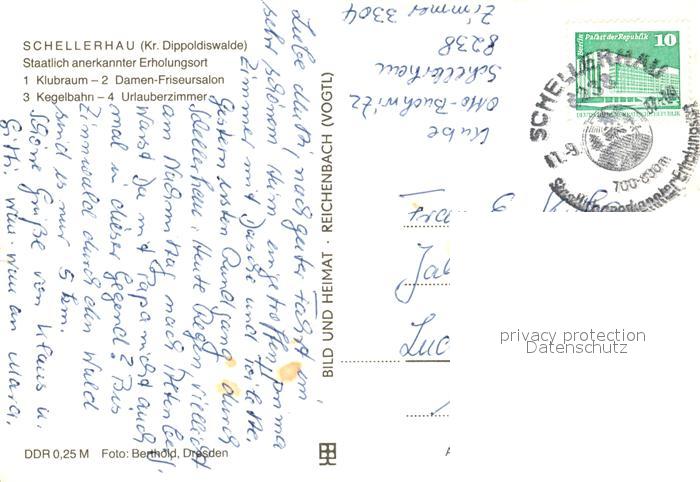 SCHELLERHAU (Kr. Dippoldiswalde)
Staatlich anerkannter Erholungsort
1 Klubraum – 2 Damen-Friseursalon
3 Kegelbahn – 4 Urlauberzimmer
Liebe Mutti, nach guter Fahrt im
sehr schönen Heim eingetroffen. Prima
Zimmer mit Dusche und Toilette.
Gestern ersten Rundgang durch
Schellerhau, heute Regen, vielleicht
am Nachmittag nach Altenberg.
Warst Du mit Papa nicht auch
mal in dieser Gegend? Bis
Zinnwald durch den Wald
sind es nur 5 km.
Schöne Grüße von Klaus u.
Gitti
DDR 0,25 M Foto: Berthold, Dresden
BILD UND HEIMAT · REICHENBACH (VOGTL)
Kube
Otto-Buchwitz
Schellerhau
8238
Zimmer 3304
Berlin Palast der Republik 10
DEUTSCHE DEMOKRATISCHE REPUBLIK
SCHELLERHAU
8238
700-800m
Staatlich anerkannter Erholungsort
privacy protection
Datenschutz